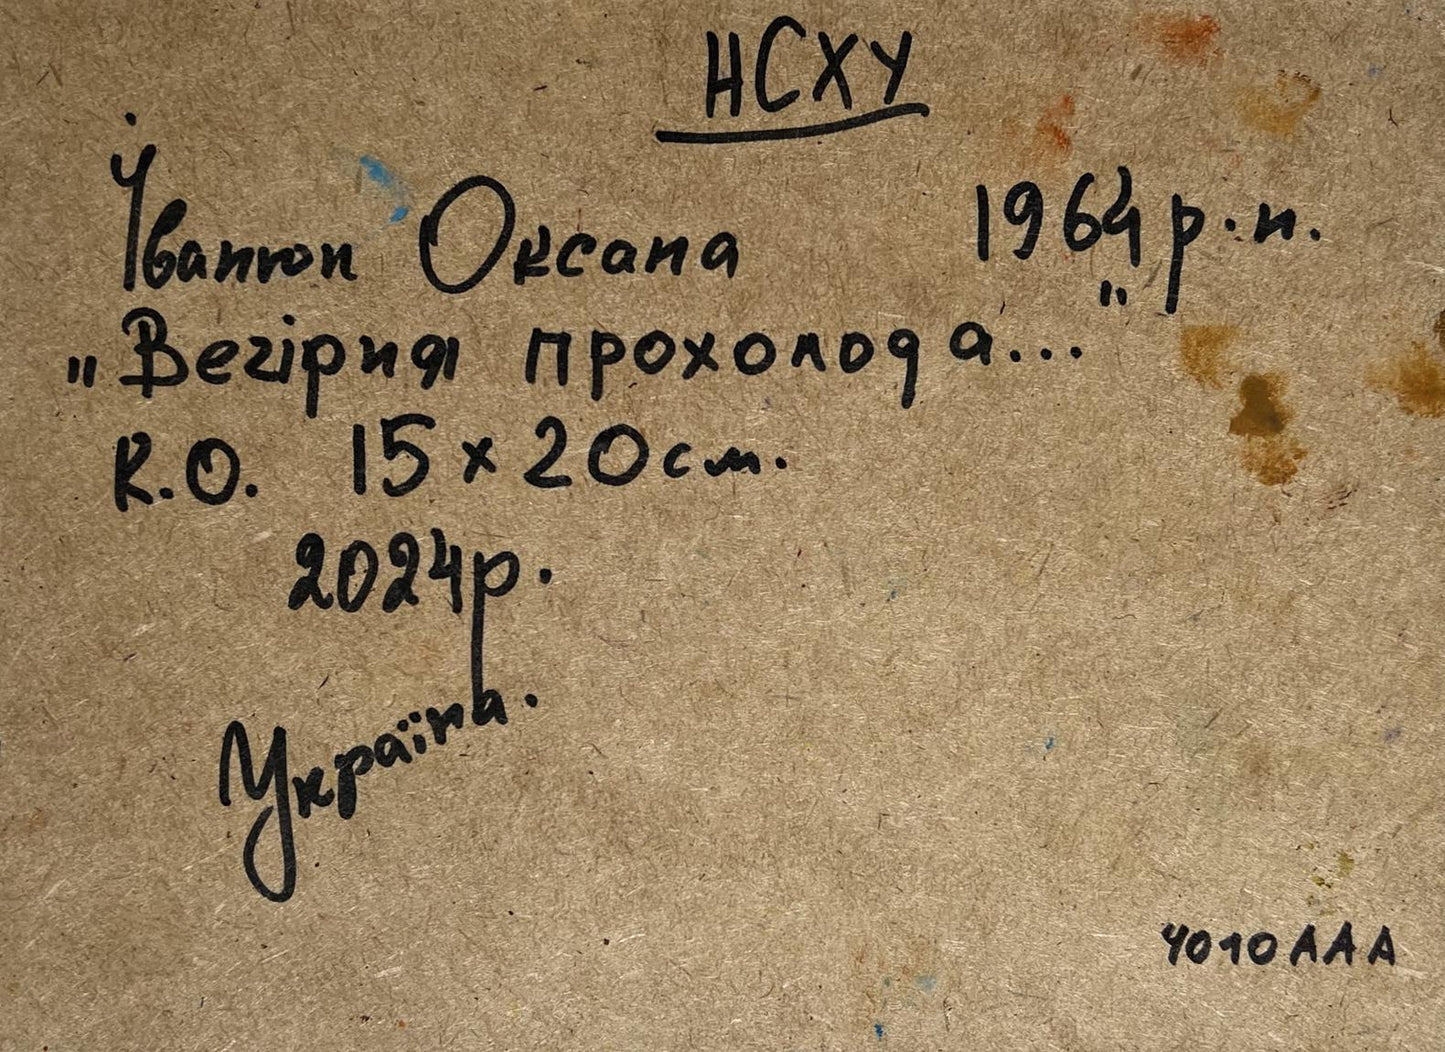 НСХУ
Іванюк Оксана 1964 р.н.
"Вечірня прохолода..."
К.О. 15 х 20 см.
2024р.
Україна.
4010ААА